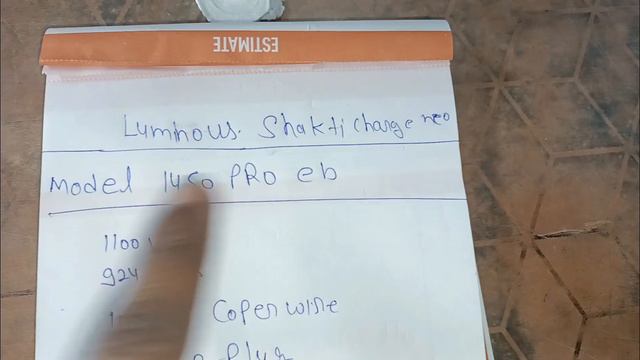 ESTIMATE
Luminous. Shakti Charge neo
Model 1450 PRO eb
1100
924
Coper wire
Plus